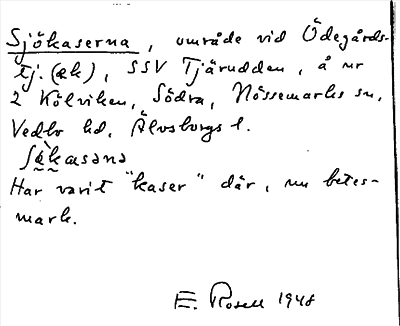 Sjökaserna, område vid Ödegårds-
tj. (ek), SSV Tjärudden, å nr
2 Kölviken, Södra, Nössemarks sn,
Vedbo hd, Älvsborgs l.
Har varit "kaser" där, nu betes-
mark.
E. Rosell 1948